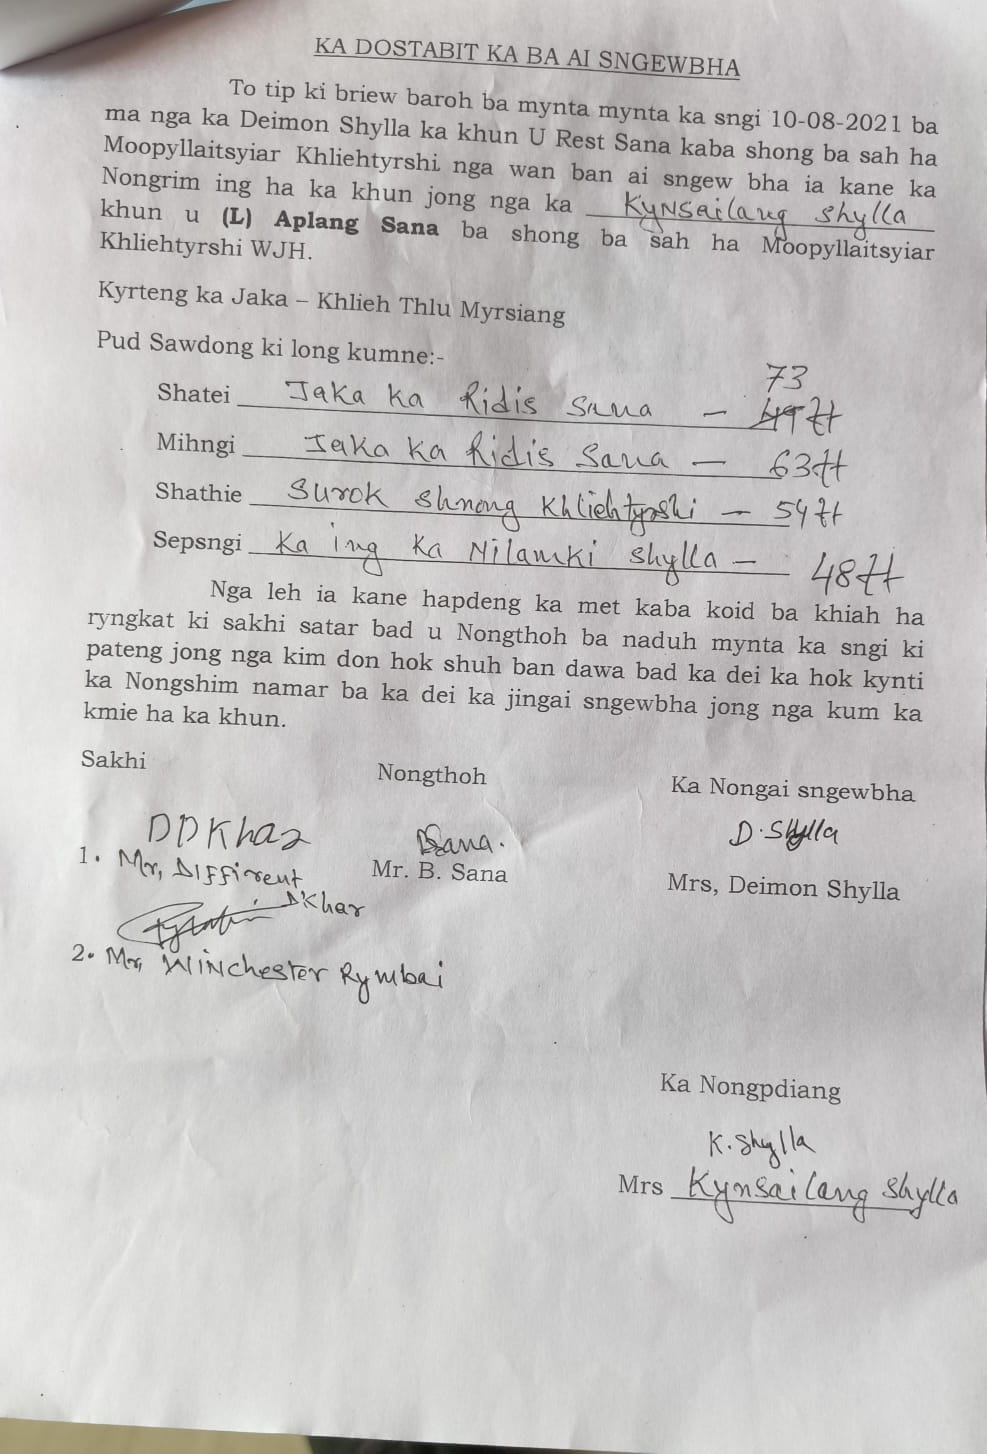 KA DOSTABIT KA BA AI SNGEWBHA
To tip ki briew baroh ba mynta mynta ka sngi 10-08-2021 ba
ma nga ka Deimon Shylla ka khun U Rest Sana kaba shong ba sah ha
Moopyllaitsyiar Khliehtyrshi nga wan ban ai sngew bha ia kane ka
Nongrim ing ha ka khun jong nga ka Kynsailang Shylla
khun u (L) Aplang Sana ba shong ba sah ha Moopyllaitsyiar
Khliehtyrshi WJH.
Kyrteng ka Jaka – Khlieh Thlu Myrsiang
Pud Sawdong ki long kumne:-
73
Shatei Jaka ka Ridis Sana – ft
Mihngi Jaka ka Ridis Sana – 63ft
Shathie Surok Shnong Khliehtyrshi – 54ft
Sepsngi Ka ing Ka Nilamki Shylla – 48ft
Nga leh ia kane hapdeng ka met kaba koid ba khiah ha
ryngkat ki sakhi satar bad u Nongthoh ba naduh mynta ka sngi ki
pateng jong nga kim don hok shuh ban dawa bad ka dei ka hok kynti
ka Nongshim namar ba ka dei ka jingai sngewbha jong nga kum ka
kmie ha ka khun.
Sakhi Nongthoh Ka Nongai sngewbha
DDKhar BSana. D.Shylla
1. Mr, Diffirent Dkhar Mr. B. Sana Mrs, Deimon Shylla
2. Mr, Winchester Rymbai
Ka Nongpdiang
K.Shylla
Mrs Kynsailang Shylla